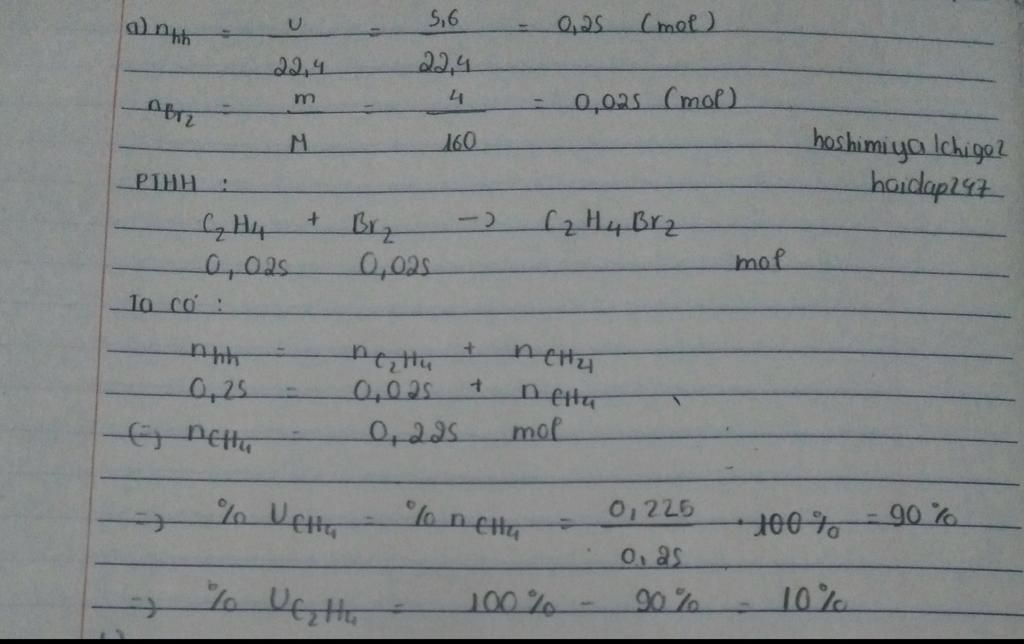 a) n_hh = V/22,4 = 5,6/22,4 = 0,25 (mol)
n_Br2 = m/M = 4/160 = 0,025 (mol)
hoshimiyaIchigo2
hoidap247
PTHH :
C2H4 + Br2 -> C2H4Br2
0,025 0,025 mol
Ta có :
n_hh = n_C2H4 + n_CH4
0,25 = 0,025 + n_CH4
(=) n_CH4 = 0,225 mol
=> % V_CH4 = % n_CH4 = 0,225/0,25 . 100% = 90%
=> % V_C2H4 = 100% - 90% = 10%